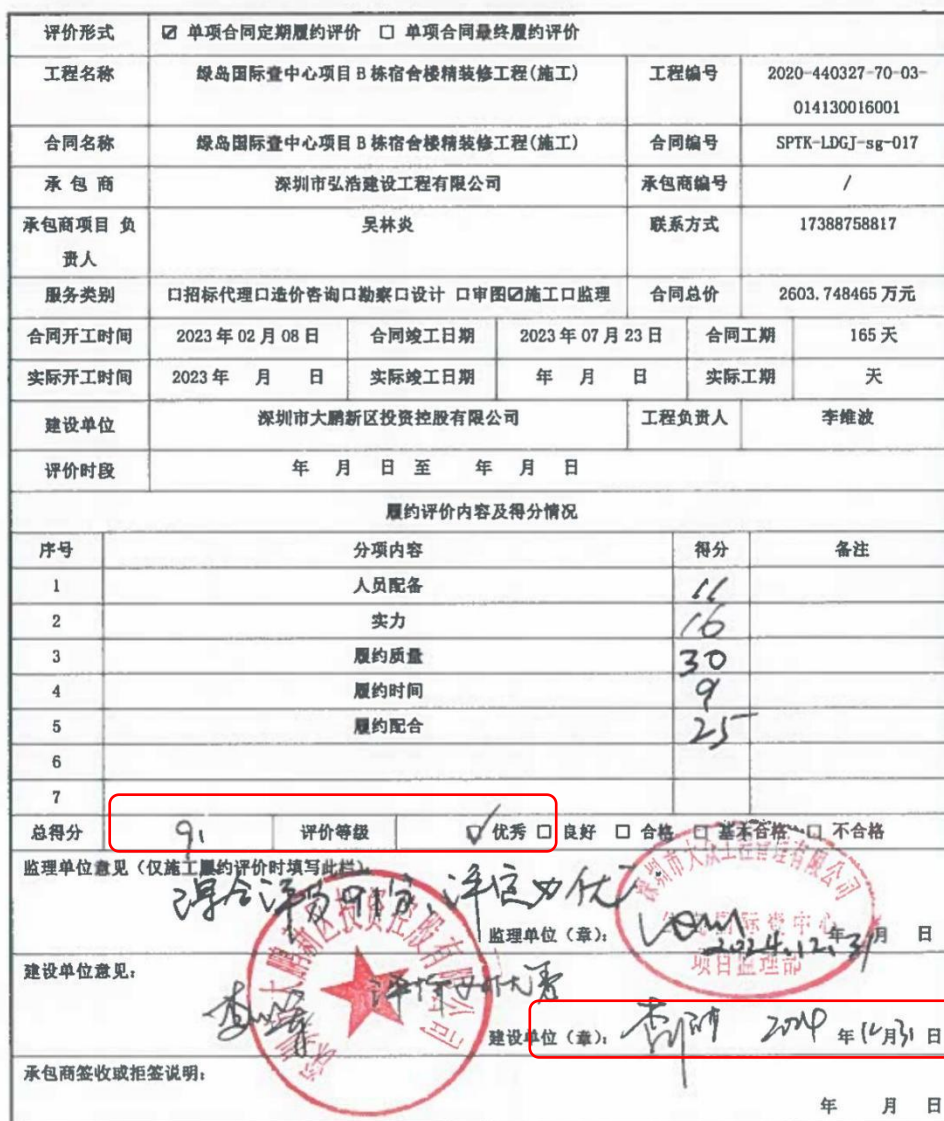 评价形式 ☑ 单项合同定期履约评价 □ 单项合同最终履约评价
工程名称 绿岛国际壹中心项目 B 栋宿舍楼精装修工程(施工) 工程编号 2020-440327-70-03-
014130016001
合同名称 绿岛国际壹中心项目 B 栋宿舍楼精装修工程(施工) 合同编号 SPTK-LDGJ-sg-017
承 包 商 深圳市弘浩建设工程有限公司 承包商编号 /
承包商项目 负 吴林炎 联系方式 17388758817
责人
服务类别 口招标代理口造价咨询口勘察口设计 口审图☑施工口监理 合同总价 2603.748465 万元
合同开工时间 2023 年 02 月 08 日 合同竣工日期 2023 年 07 月 23 日 合同工期 165 天
实际开工时间 2023 年 月 日 实际竣工日期 年 月 日 实际工期 天
建设单位 深圳市大鹏新区投资控股有限公司 工程负责人 李维波
评价时段 年 月 日 至 年 月 日
履约评价内容及得分情况
序号 分项内容 得分 备注
1 人员配备 11
2 实力 16
3 履约质量 30
4 履约时间 9
5 履约配合 25
6
7
总得分 91 评价等级 ☑ 优秀 □ 良好 □ 合格 □ 基本合格 □ 不合格
监理单位意见（仅施工履约评价时填写此栏）
综合评分91分，评定为优
深圳市大众工程管理有限公司
监理单位（章）： 年 月 日
2024.12.31
项目监理部
建设单位意见：
评价为优秀
深圳市大鹏新区投资控股有限公司
建设单位（章）： 2024 年 12 月 31 日
承包商签收或拒签说明：
年 月 日